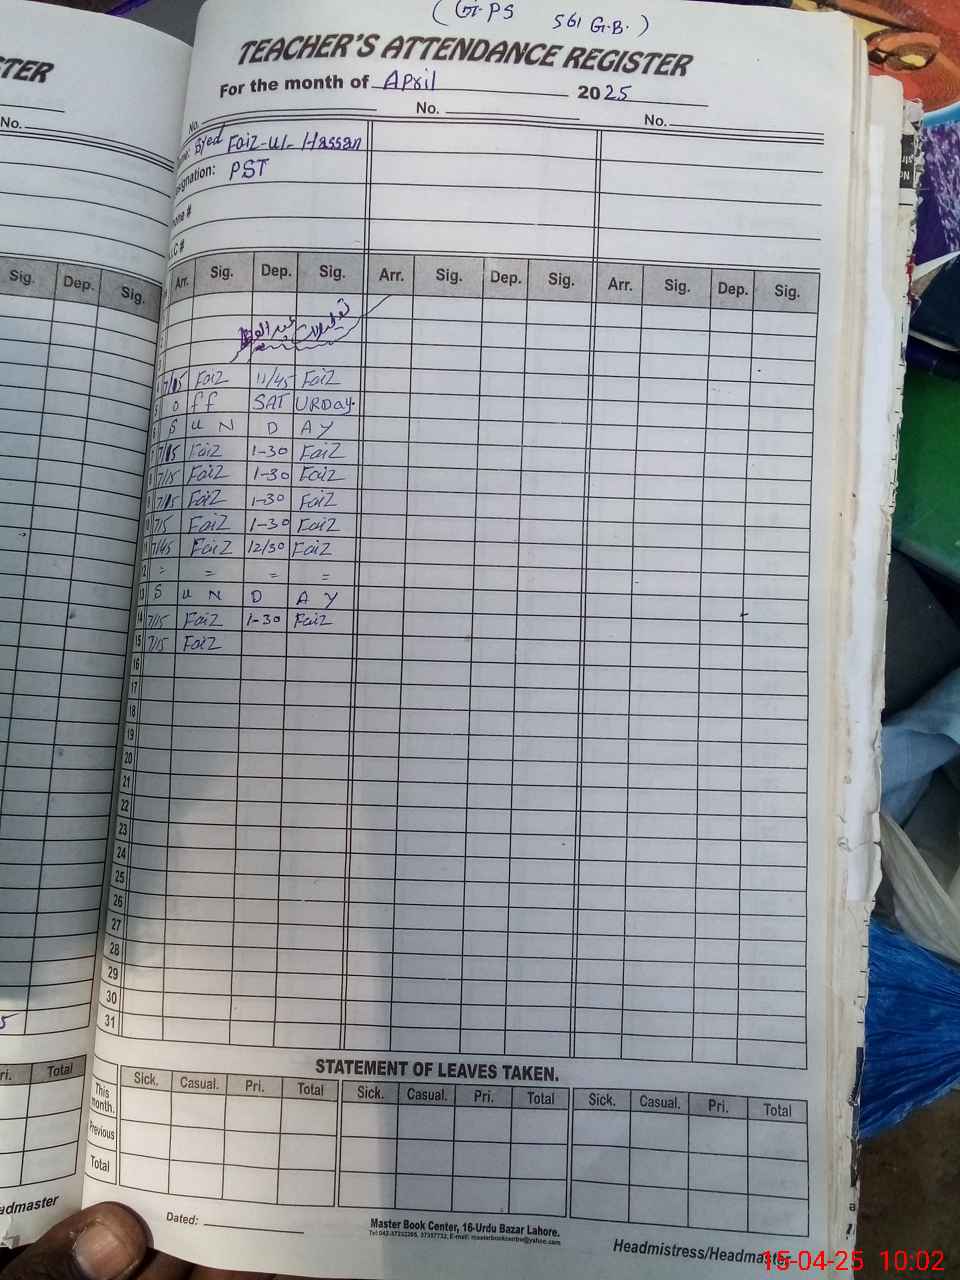 (G.PS 561 G.B.)
TEACHER'S ATTENDANCE REGISTER
For the month of April 2025
No. No. No.
Syed Faiz-ul-Hassan
Designation: PST
Arr. Sig. Dep. Sig. Arr. Sig. Dep. Sig. Arr. Sig. Dep. Sig.
تعطیلات
4 7/15 Faiz 11/45 Faiz
5 o ff SAT URDay.
6 S u N D A Y
7 7/15 Faiz 1-30 Faiz
8 7/15 Faiz 1-30 Faiz
9 7/15 Faiz 1-30 Faiz
10 7/15 Faiz 1-30 Faiz
11 7/45 Faiz 12/30 Faiz
12 = = = =
13 S u N D A Y
14 7/15 Faiz 1-30 Faiz
15 7/15 Faiz
16
17
18
19
20
21
22
23
24
25
26
27
28
29
30
31
STATEMENT OF LEAVES TAKEN.
Sick. Casual. Pri. Total Sick. Casual. Pri. Total Sick. Casual. Pri. Total
This month.
Previous
Total
Dated:
Master Book Center, 16-Urdu Bazar Lahore.
Headmistress/Headmaster
TER
No.
Sig. Dep. Sig.
5
ri. Total
eadmaster
15-04-25 10:02